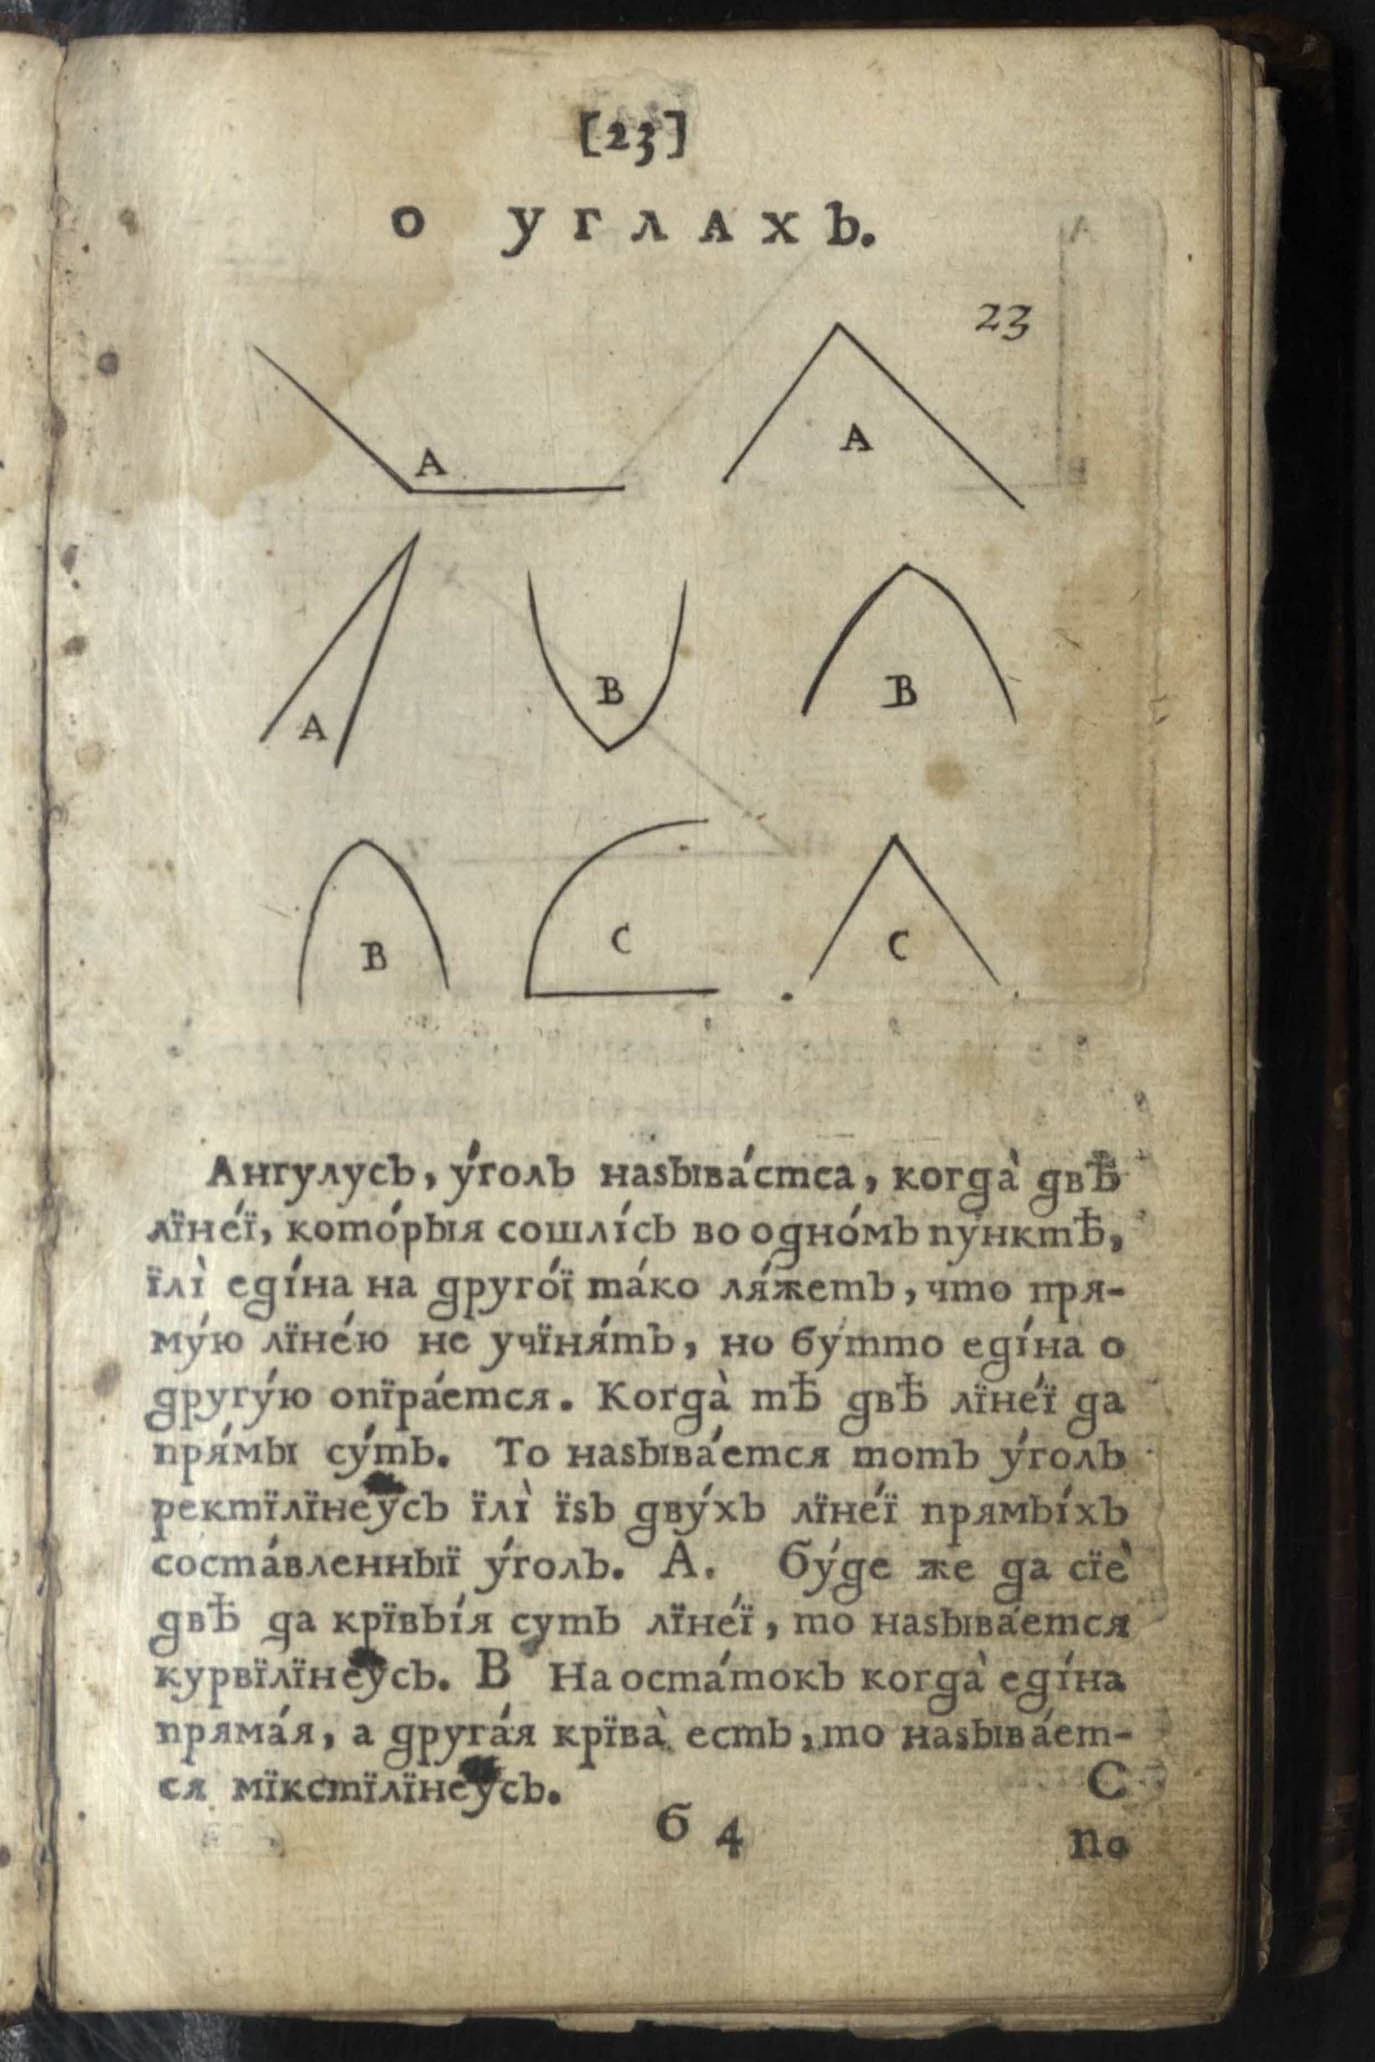 [23]
О УГЛАХЪ.
23
A
A
A
B
B
B
C
C
Ангулусъ, у́голъ наѕыва́етса, когда̀ двѣ̀
лїне́ї, кото́рыя сошлі́сь во одно́мъ пу́нктѣ,
їлі̀ еді́на на друго́ї та́ко ля́жетъ, что пря-
му́ю лїне́ю не учїня́тъ, но бу́тто еді́на о
другу́ю опїра́ется. Когда̀ тѣ двѣ лїне́ї да
пря́мы су́ть. То наѕыва́ется тотъ у́голъ
ректїлїнеусъ їлі̀ їѕъ дву́хъ лїне́ї прямы́хъ
соста́вленныї у́голъ. A. Бу́де же да сїѐ
двѣ да крївы́я суть лїне́ї, то наѕыва́ется
курвїлїнеусъ. B На оста́токъ когда̀ еді́на
пряма́я, а друга́я крїва̀ есть, то наѕыва́ет-
ся мїкстїлїнеусъ. C
б 4 по